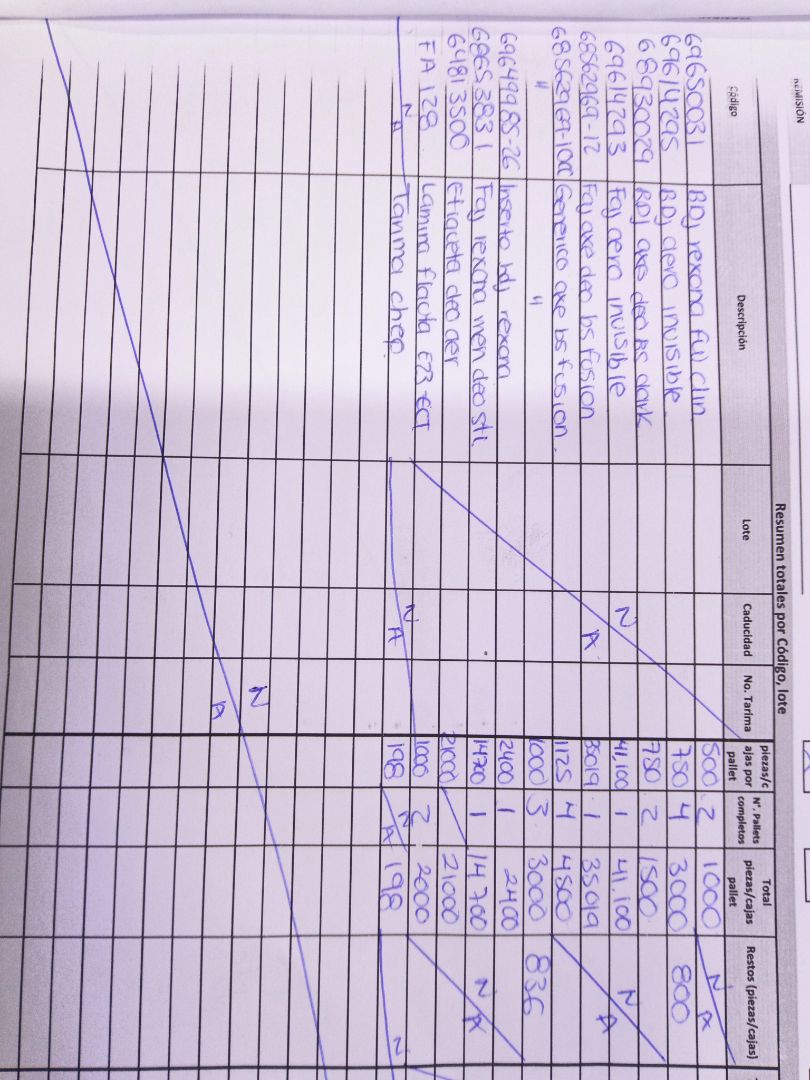 REMISIÓN
Resumen totales por Código, lote
Código Descripción Lote Caducidad No. Tarima piezas/c ajas por pallet N°. Pallets completos Total piezas/cajas pallet Restos (piezas/cajas)
69650031 BDJ rexona full clin 500 2 1000 N A
69614295 BDJ aero invisible. 750 4 3000 800
68930029 BDJ axe deo BS dark 750 2 1500
69614293 Faj aero invisible N A 41,100 1 41.100 N A
68562969-12 Faj axe deo bs fusion 35019 1 35019
68562969-100 Generico axe bs fusion. 1125 4 4500
" " 1000 3 3000 836
69649985-26 Inserto bdj rexona 2400 1 2400
68653831 Faj rexona men deo sti. 14700 1 14700 N A
64813500 Etiqueta deo aer 21000 21000
FA 128 Lamina flauta E23-ECT 1000 2 2000
N A Tarima chep. N A 198 N A 198 N
N A